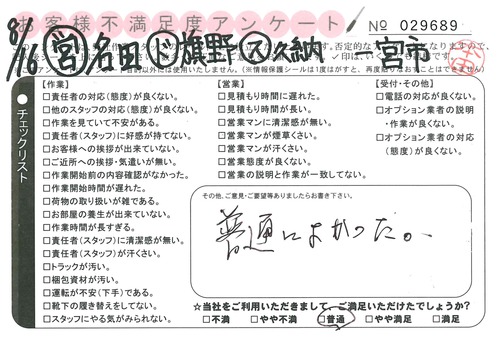 お客様不満足度アンケート
№ 029689
8/16 営 名田 旗野 久納 宮市
チェックリスト
【作業】
□責任者の対応(態度)が良くない。
□他のスタッフの対応(態度)が良くない。
□作業を見ていて不安がある。
□責任者(スタッフ)に好感が持てない。
□お客様への挨拶が出来ていない。
□ご近所への挨拶・気遣いが無い。
□作業開始前の内容確認がなかった。
□作業開始時間が遅れた。
□荷物の取り扱いが雑である。
□お部屋の養生が出来ていない。
□作業時間が長すぎる。
□責任者(スタッフ)に清潔感が無い。
□責任者(スタッフ)が汗くさい。
□トラックが汚い。
□梱包資材が汚い。
□運転が不安(下手)である。
□靴下の履き替えをしてない。
□スタッフにやる気がみられない。
【営業】
□見積もり時間に遅れた。
□見積もり時間が長い。
□営業マンに清潔感が無い。
□営業マンが煙草くさい。
□営業マンが汗くさい。
□営業態度が良くない。
□営業の説明と作業が一致してない。
【受付・その他】
□電話の対応が良くない。
□オプション業者の説明
・作業が良くない。
□オプション業者の対応
(態度)が良くない。
その他、ご意見・ご要望等ありましたらお書き下さい。
普通によかった。
☆当社をご利用いただきまして、ご満足いただけたでしょうか?
□不満 □やや不満 □普通 □やや満足 □満足